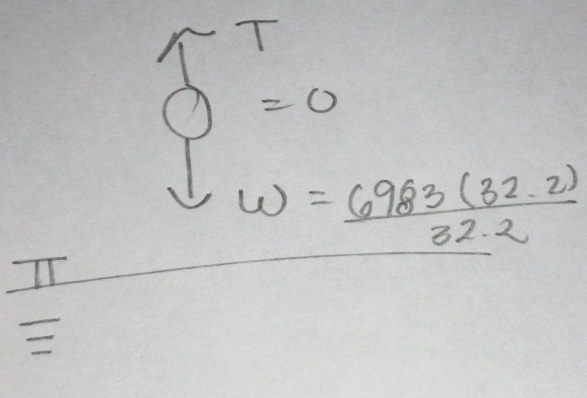 T
= 0
W = 6983 (32.2)
32.2
II